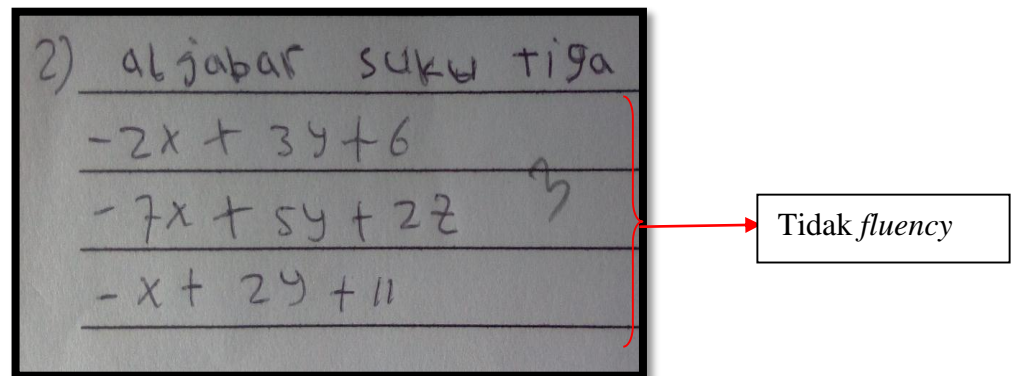 2) aljabar suku tiga
-2x + 3y + 6
-7x + 5y + 2z
3
-x + 2y + 11
Tidak fluency